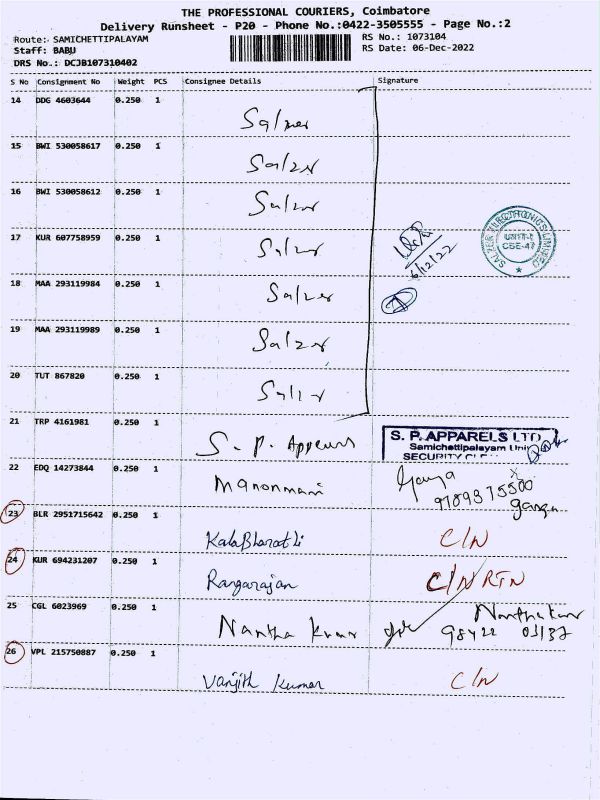 THE PROFESSIONAL COURIERS, Coimbatore
Delivery Runsheet - P20 - Phone No.:0422-3505555 - Page No.:2
Route: SAMICHETTIPALAYAM
RS No.: 1073104
Staff: BABU
RS Date: 06-Dec-2022
DRS No.: DCJB107310402
S No Consignment No Weight PCS Consignee Details Signature
14 DDG 4603644 0.250 1
Salzer
15 BWI 530058617 0.250 1
Salzer
16 BWI 530058612 0.250 1
Salzer
17 KUR 607758959 0.250 1
Salzer
6/12/22
SALZER ELECTRONICS LIMITED
UNIT-I
CBE-47
18 MAA 293119984 0.250 1
Salzer
7
19 MAA 293119989 0.250 1
Salzer
20 TUT 867820 0.250 1
Salzer
21 TRP 4161981 0.250 1
S. P. Apperals
S. P. APPARELS LTD.,
Samichettipalayam Unit
SECURITY
22 EDQ 14273844 0.250 1
Manonmani
Ganga
9789375500
ganga
23 BLR 2951715642 0.250 1
KalaBharathi C/N
24 KUR 694231207 0.250 1
Rangarajan C/N RTN
25 CGL 6023969 0.250 1
Nantha Kumar
Nanthakumar
98422 03137
26 VPL 215750887 0.250 1
Vanjith Kumar C/N